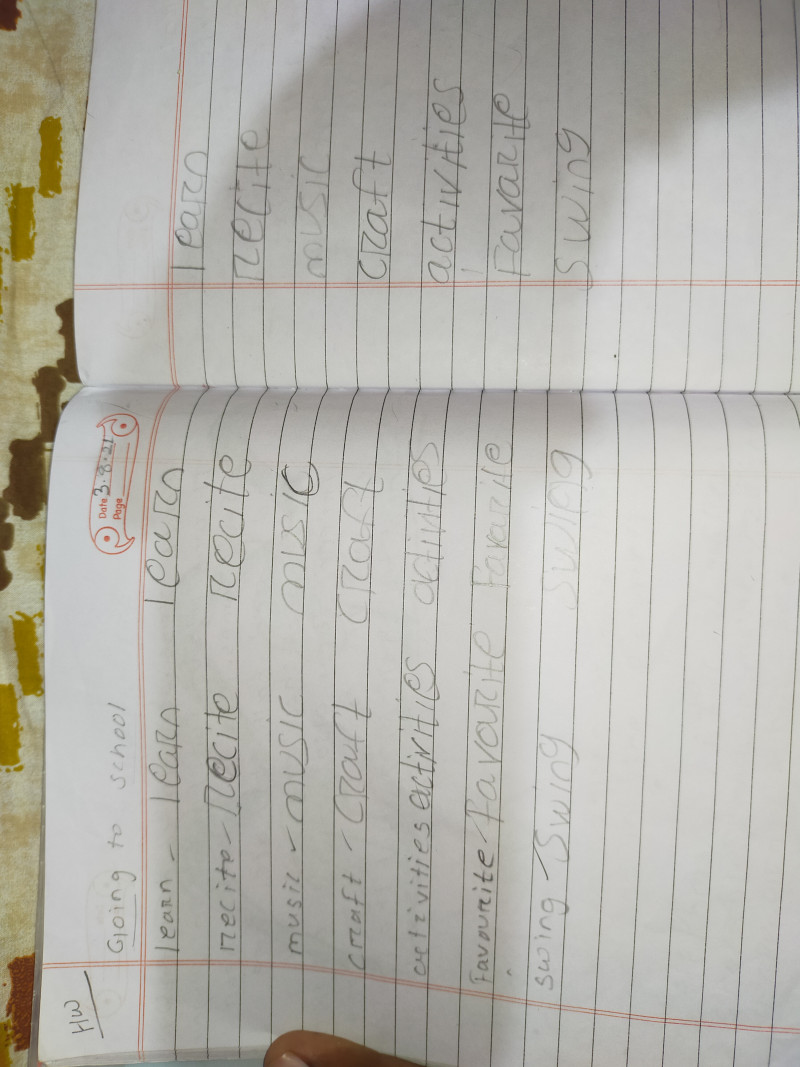 HW
Date 3.8.21
Page
Going to school
learn - learn learn
recite - recite recite
music - music music
craft - craft craft
activities activities activities
Favourite - Favourite Favarite
swing - Swing swing
learn
recite
music
craft
activities
Favarite
swing